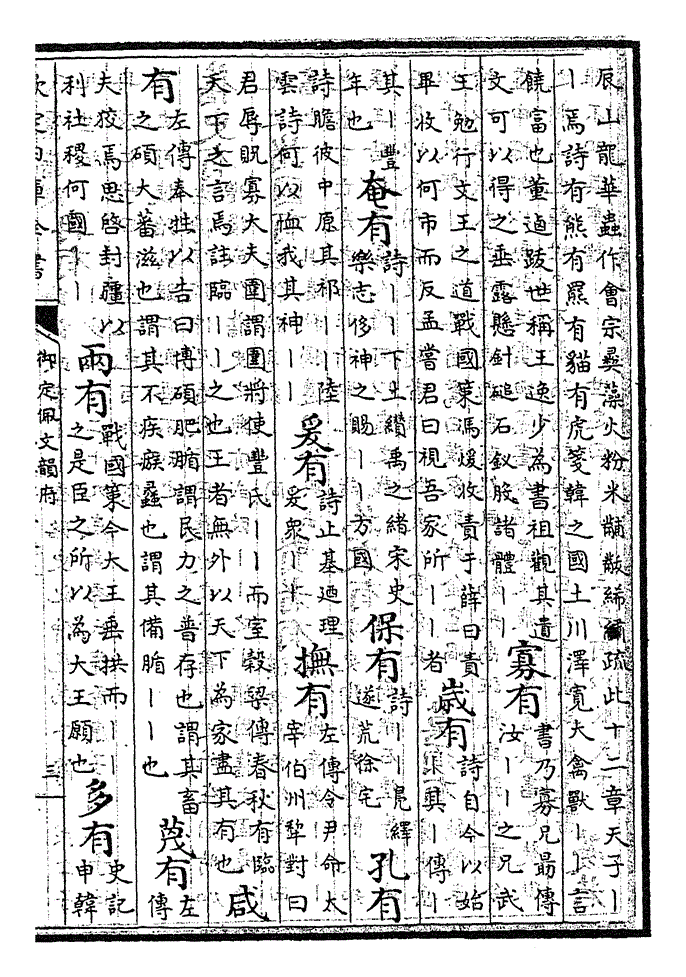 辰山龍華蟲作會宗彝藻火粉米黼黻絺繡疏此十二章天子丨
丨焉詩有熊有羆有貓有虎箋韓之國土川澤寬大禽獸丨丨言
饒富也董逌跋世稱王逸少為書祖觀其遺
文可以得之垂露懸針磓石釵股諸體丨丨
寡有
書乃寡兄勗傳
汝丨丨之兄武
王勉行文王之道戰國策馮煖收責于薛曰責
畢收以何市而反孟嘗君曰視吾家所丨丨者
歲有
詩自今以始
歲其丨傳丨
其丨豐
年也
奄有
詩丨丨下土纘禹之緒宋史
樂志侈神之賜丨丨方國
保有
詩丨丨鳧繹
遂荒徐宅
孔有
詩瞻彼中原其祁丨丨陸
雲詩何以恤我其神丨丨
爰有
詩止基迺理
爰衆丨丨
撫有
左傳令尹命太
宰伯州犂對曰
君辱貺寡大夫圍謂圍將使豐氏丨丨而室穀梁傳春秋有臨
天下之言焉註臨丨丨之也王者無外以天下為家盡其有也
咸
有
左傳奉牲以告曰博碩肥腯謂民力之普存也謂其畜
之碩大蕃滋也謂其不疾瘯蠡也謂其備腯丨丨也
蔑有
左
傳
夫狡焉思啓封疆以
利社稷何國丨丨
兩有
戰國策今大王垂拱而丨丨
之是臣之所以為大王願也
多有
史記
申韓
欽定四庫全書
御定佩文韻府
三